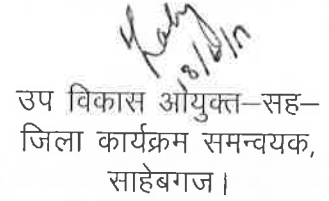 उप विकास आयुक्त–सह–
जिला कार्यक्रम समन्वयक,
साहेबगज।